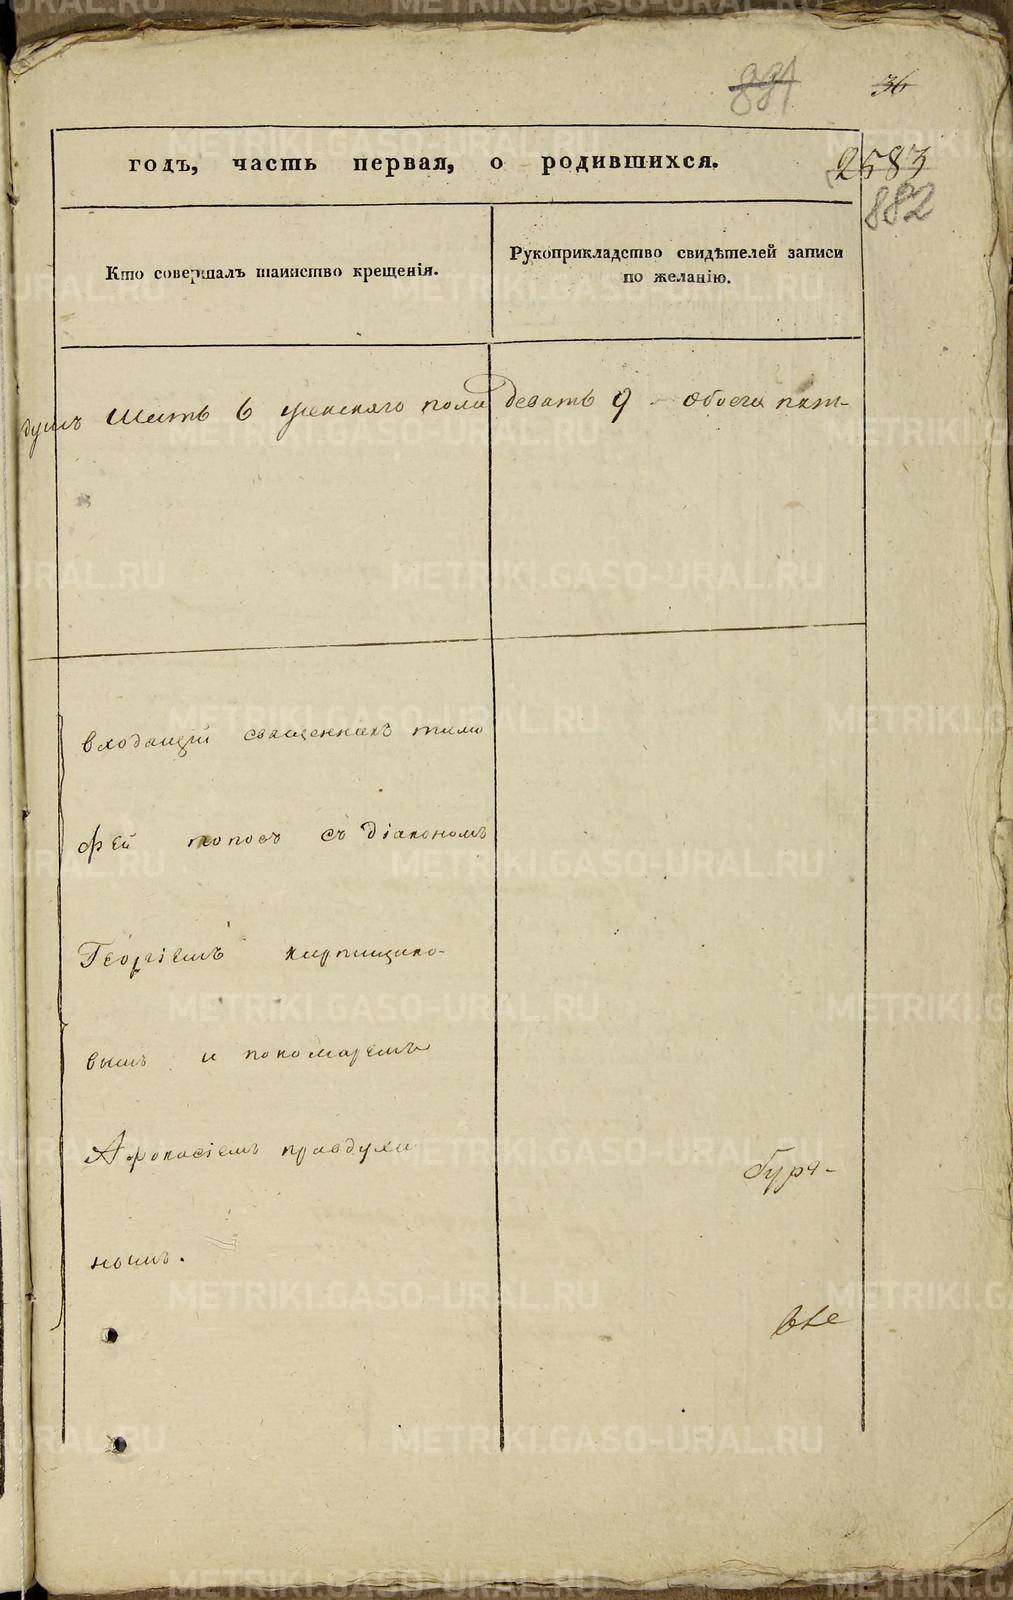 881
36
годъ, часть первая, о родившихся.
2583
882
Кто совершалъ таинство крещенія.
Рукоприкладство свидѣтелей записи
по желанію.
душъ Шесть 6 женскаго пола девать 9 обоега пят-
входащій священникъ тимо
фей поповъ съ діакономъ
Георгіемъ кирпищико-
вымъ и пономаремъ
Афонасіемъ правдухи
нымъ.
METRIKI.GASO-URAL.RU